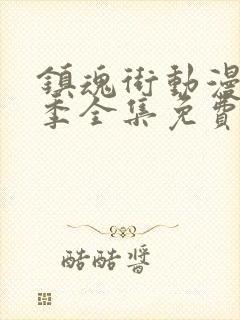 鎮魂街動漫
季全集免費
酷酷醬